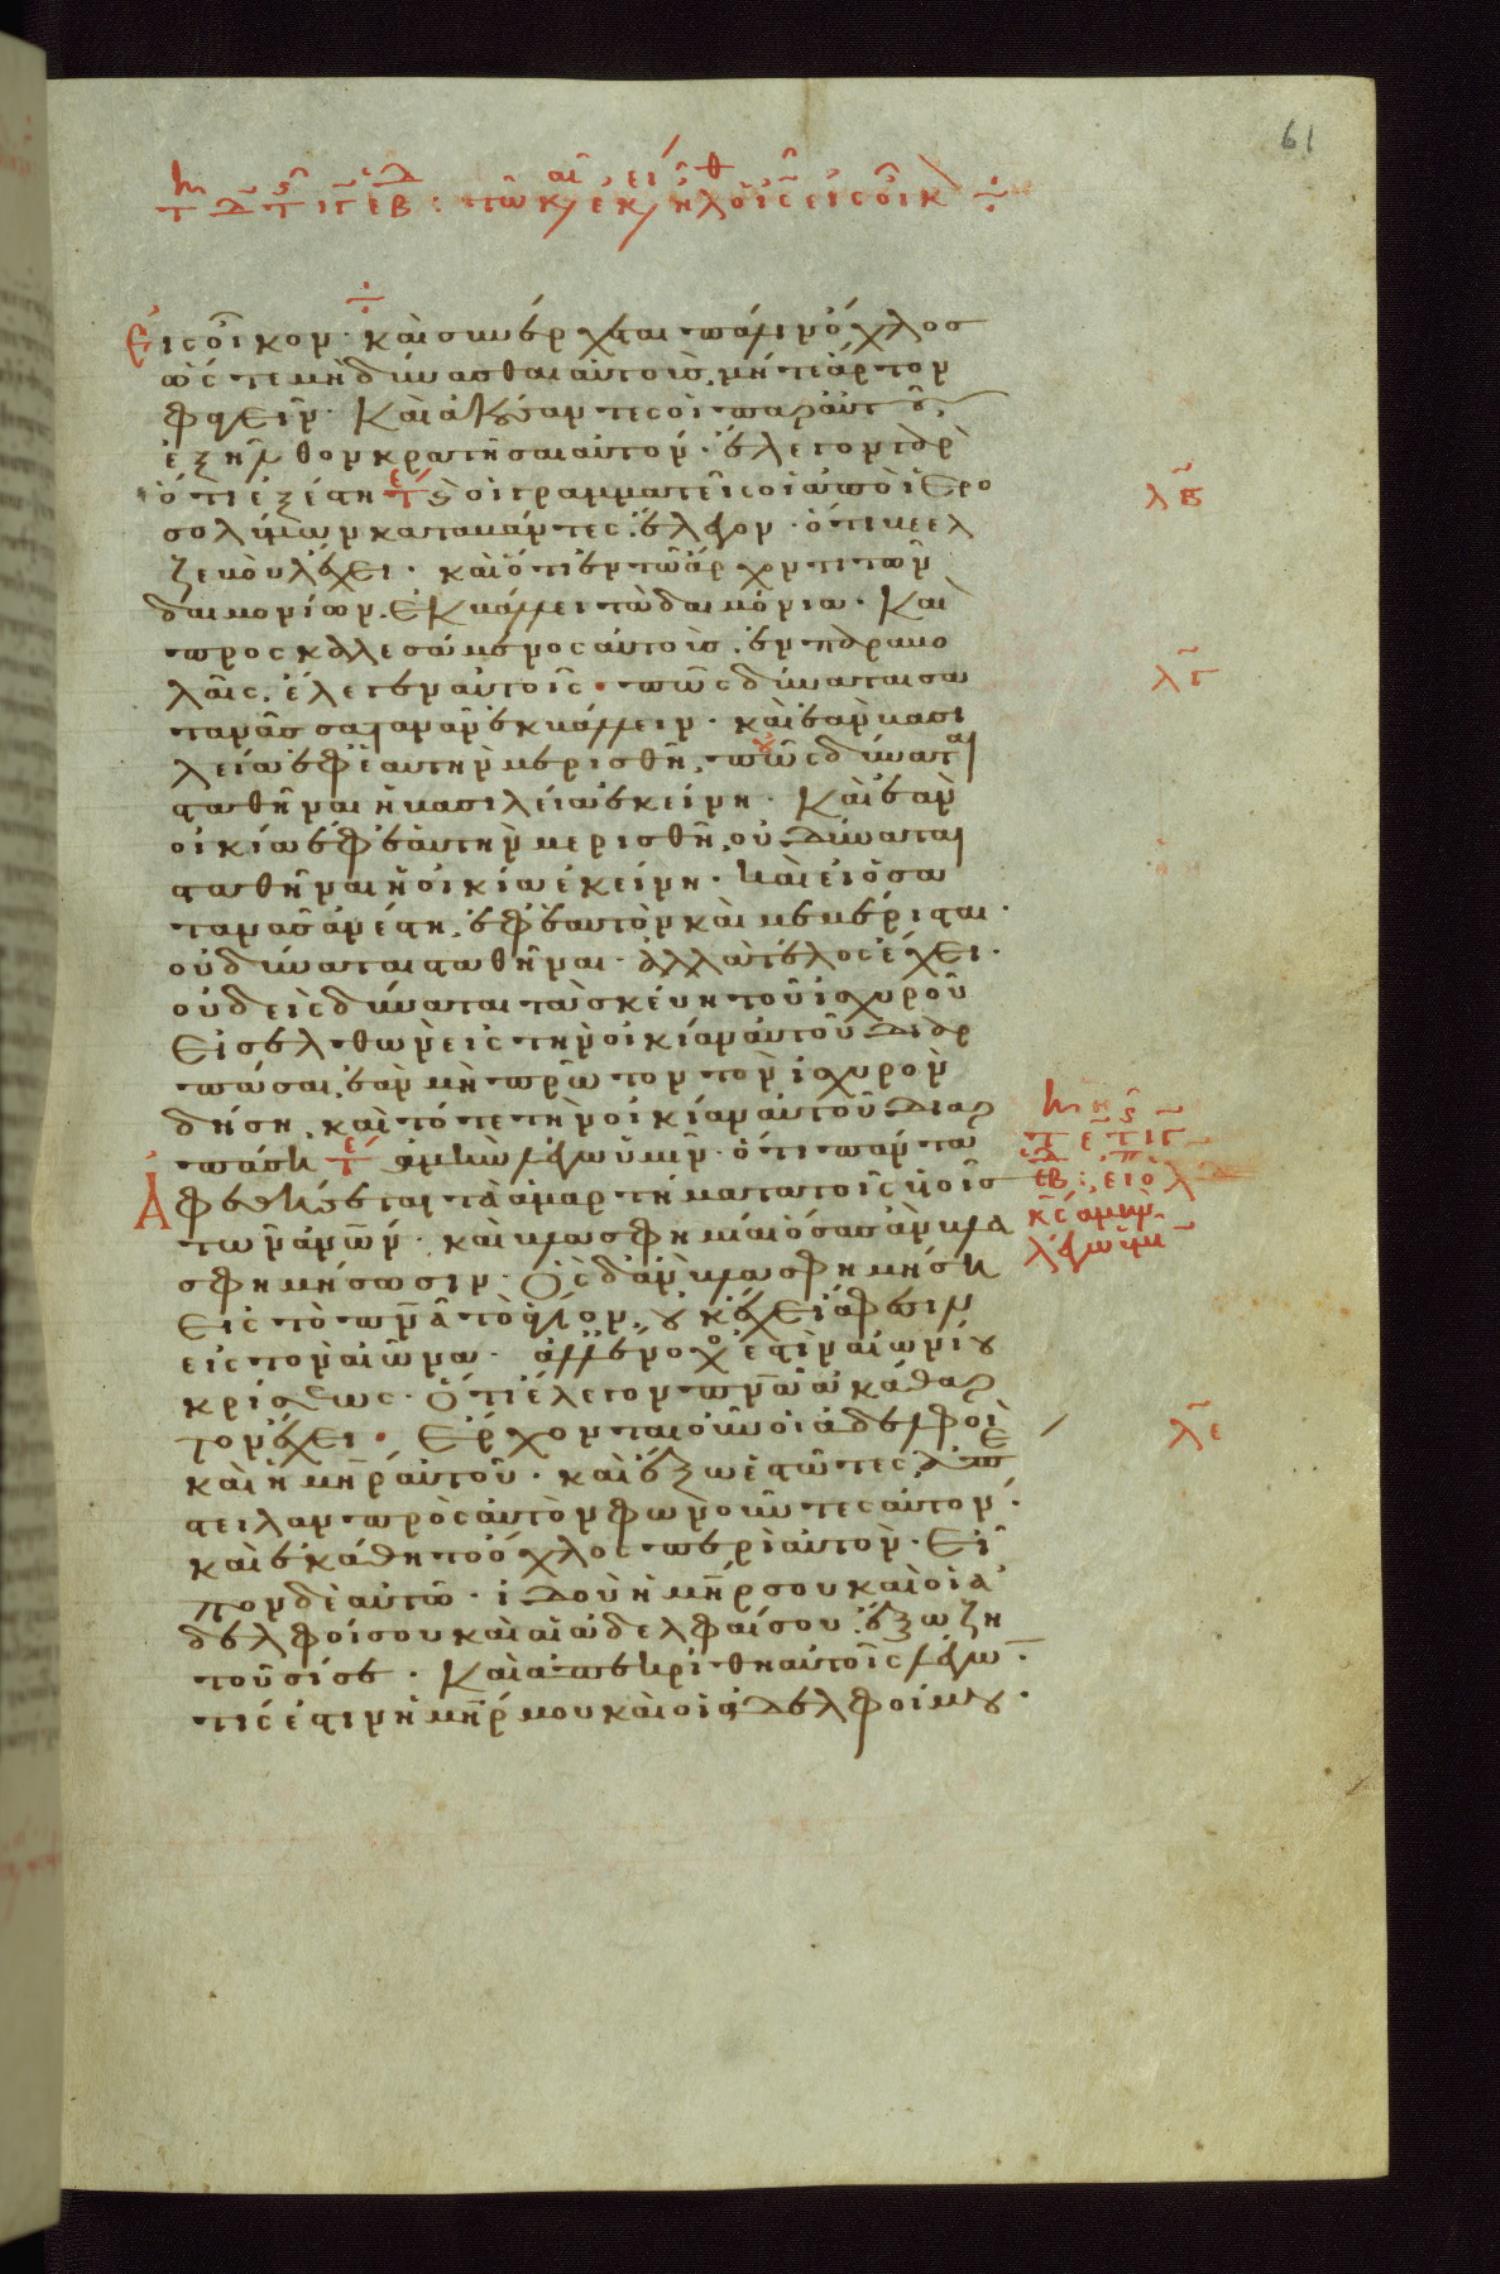 61
εἰς οἶκον· καὶ συνέρχεται πάλιν ὄχλος
ὥστε μὴ δύνασθαι αὐτοὺς μήτε ἄρτον
φαγεῖν· Καὶ ἀκούσαντες οἱ παρ αὐτοῦ,
ἐξῆλθον κρατῆσαι αὐτόν· ἔλεγον γὰρ
ὅτι ἐξέστη οἱ γραμματεῖς οἱ ἀπὸ ἱερο
σολύμων καταβάντες ἔλεγον· ὅτι βεελ
ζεβοὺλ ἔχει· καὶ ὅτι ἐν τῶ ἄρχοντι τῶν
δαιμονίων ἐκβάλλει τὰ δαιμόνια· Καὶ
προσκαλεσάμενος αὐτοὺς, ἐν παραβο
λαῖς ἔλεγεν αὐτοῖς· πῶς δύναται σα
τανᾶς σατανᾶν ἐκβάλλειν· καὶ ἐὰν βασι
λεία ἐφ ἑαυτὴν μερισθῆ, πῶς δύναται
σταθῆναι ἡ βασιλεία ἐκείνη· Καὶ ἐὰν
οἰκία ἐφ ἑαυτὴν μερισθῆ, οὐ δύναται
σταθῆναι ἡ οἰκία ἐκείνη· καὶ εἰ ὁ σα
τανᾶς ἀνέστη ἐφ ἑαυτὸν καὶ μεμέρισται·
οὐ δύναται σταθῆναι· ἀλλὰ τέλος ἔχει·
οὐδεὶς δύναται τὰ σκεύη τοῦ ἰσχυροῦ
εἰσελθὼν εἰς τὴν οἰκίαν αὐτοῦ διαρ
πάσαι, ἐὰν μὴ πρῶτον τὸν ἰσχυρὸν
δήση, καὶ τότε τὴν οἰκίαν αὐτοῦ διαρ
πάση ἀμὴν λέγω ὑμῖν· ὅτι πάντα
ἀφεθήσεται τὰ ἁμαρτήματα τοῖς υἱοῖς
τῶν ἀνων· καὶ βλασφημίαι ὅσας ἂν βλα
σφημήσωσιν· Ὃς δ ἂν βλασφημήση
εἰς τὸ πνα τὸ ἅγιον, οὐκ ἔχει ἄφεσιν
εἰς τὸν αἰῶνα· ἀλλ ἔνοχος ἐστὶν αἰωνίου
κρίσεως· Ὅτι ἔλεγον πνα ἀκάθαρ
τον ἔχει· Ἔρχονται οὖν οἱ ἀδελφοὶ
καὶ ἡ μηρ αὐτοῦ· καὶ ἔξω ἑστῶτες ἀπέ
στειλαν πρὸς αὐτὸν φωνοῦντες αὐτόν·
καὶ ἐκάθητο ὄχλος περὶ αὐτὸν· Εἶ
πον δὲ αὐτῶ· ἰδοὺ ἡ μηρ σου καὶ οἱ ἀ
δελφοί σου καὶ αἱ ἀδελφαί σου ἔξω ζη
τοῦσί σε· Καὶ ἀπεκρίθη αὐτοῖς λέγων·
τίς ἐστιν ἡ μηρ μου καὶ οἱ ἀδελφοί μου·